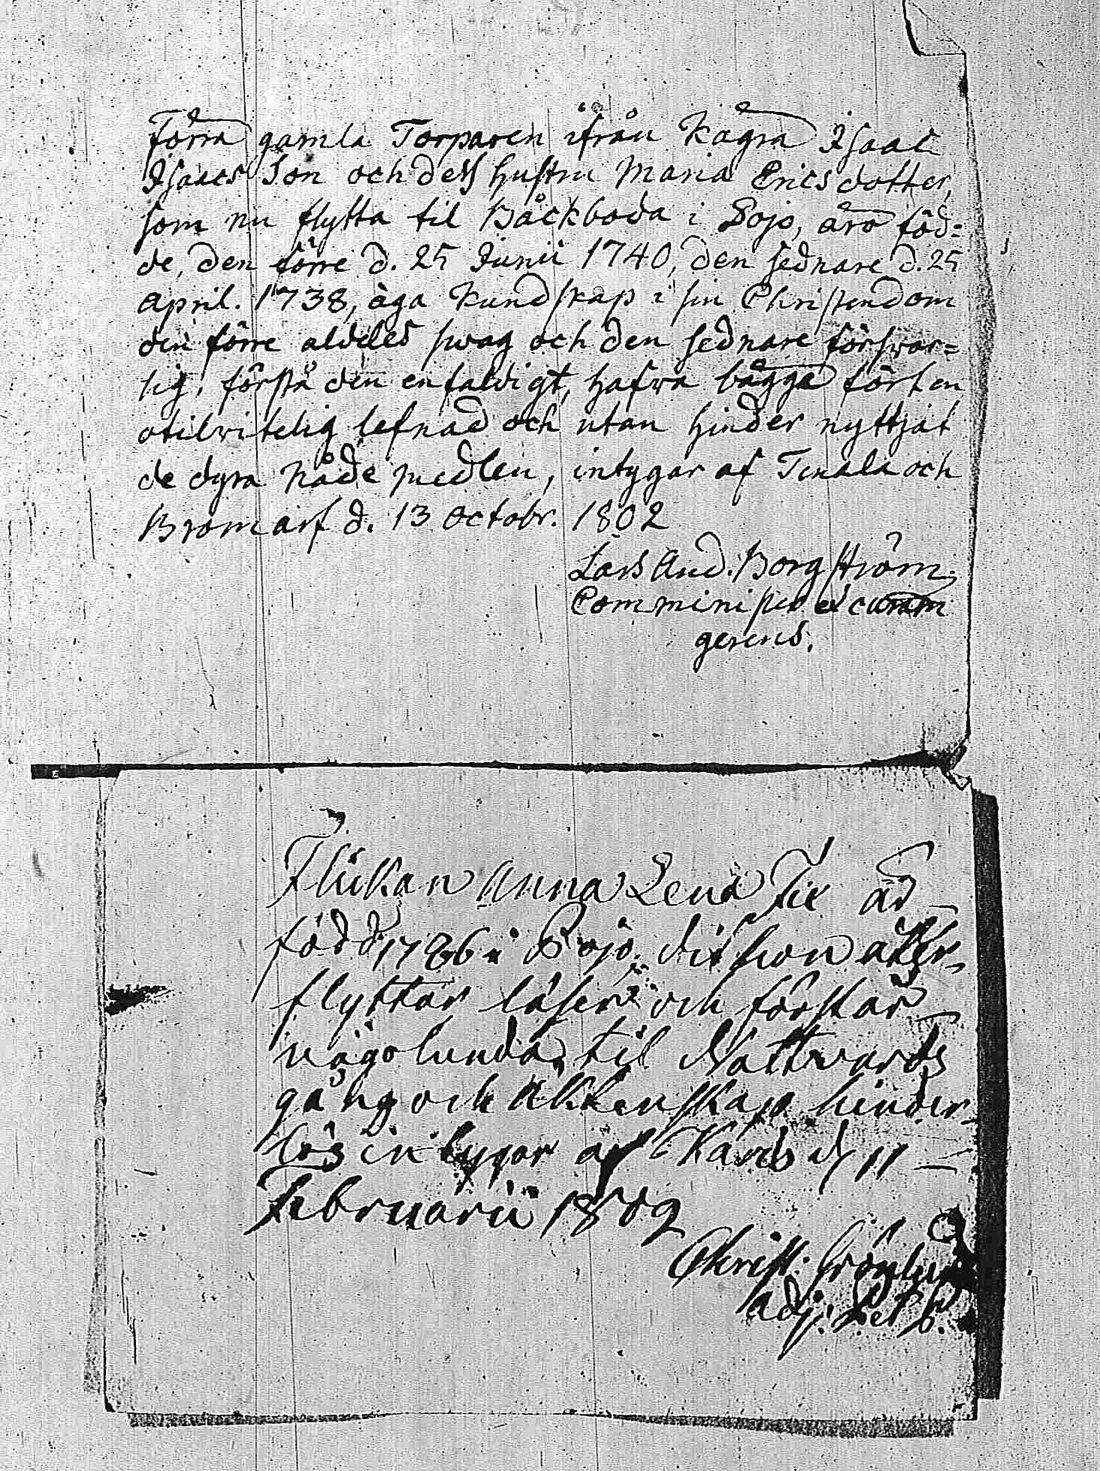 Förra gamla Torparen ifrån Kagra Isaac
Isaacs Son och dess hustru Maria Ericsdotter,
som nu flytta til Bäckboda i Lojo, äro föd=
de, den förre d. 25 Junii 1740, den sednare d. 25
April. 1738, äga kundskap i sin Christendom
den förre aldeles swag och den sednare förswar=
lig, förstå den enfaldigt, hafwa bägge fört en
otilvitelig lefnad och utan hinder nyttjat
de dyra Nåde medlen, intygar af Tenala och
Bromarf d. 13 Octobr. 1802
Lars And. Borgström,
Comminister et curam
gerens.
Flickan Anna Lena Fix är
född 1786 i Lojo, dit hon åter
flyttar läser och förstår
någolunda, til Nattvards
gång och äktenskap hinder
lös intygar af Karis d 11
Februarii 1802
Christ. Grönlund
adj.